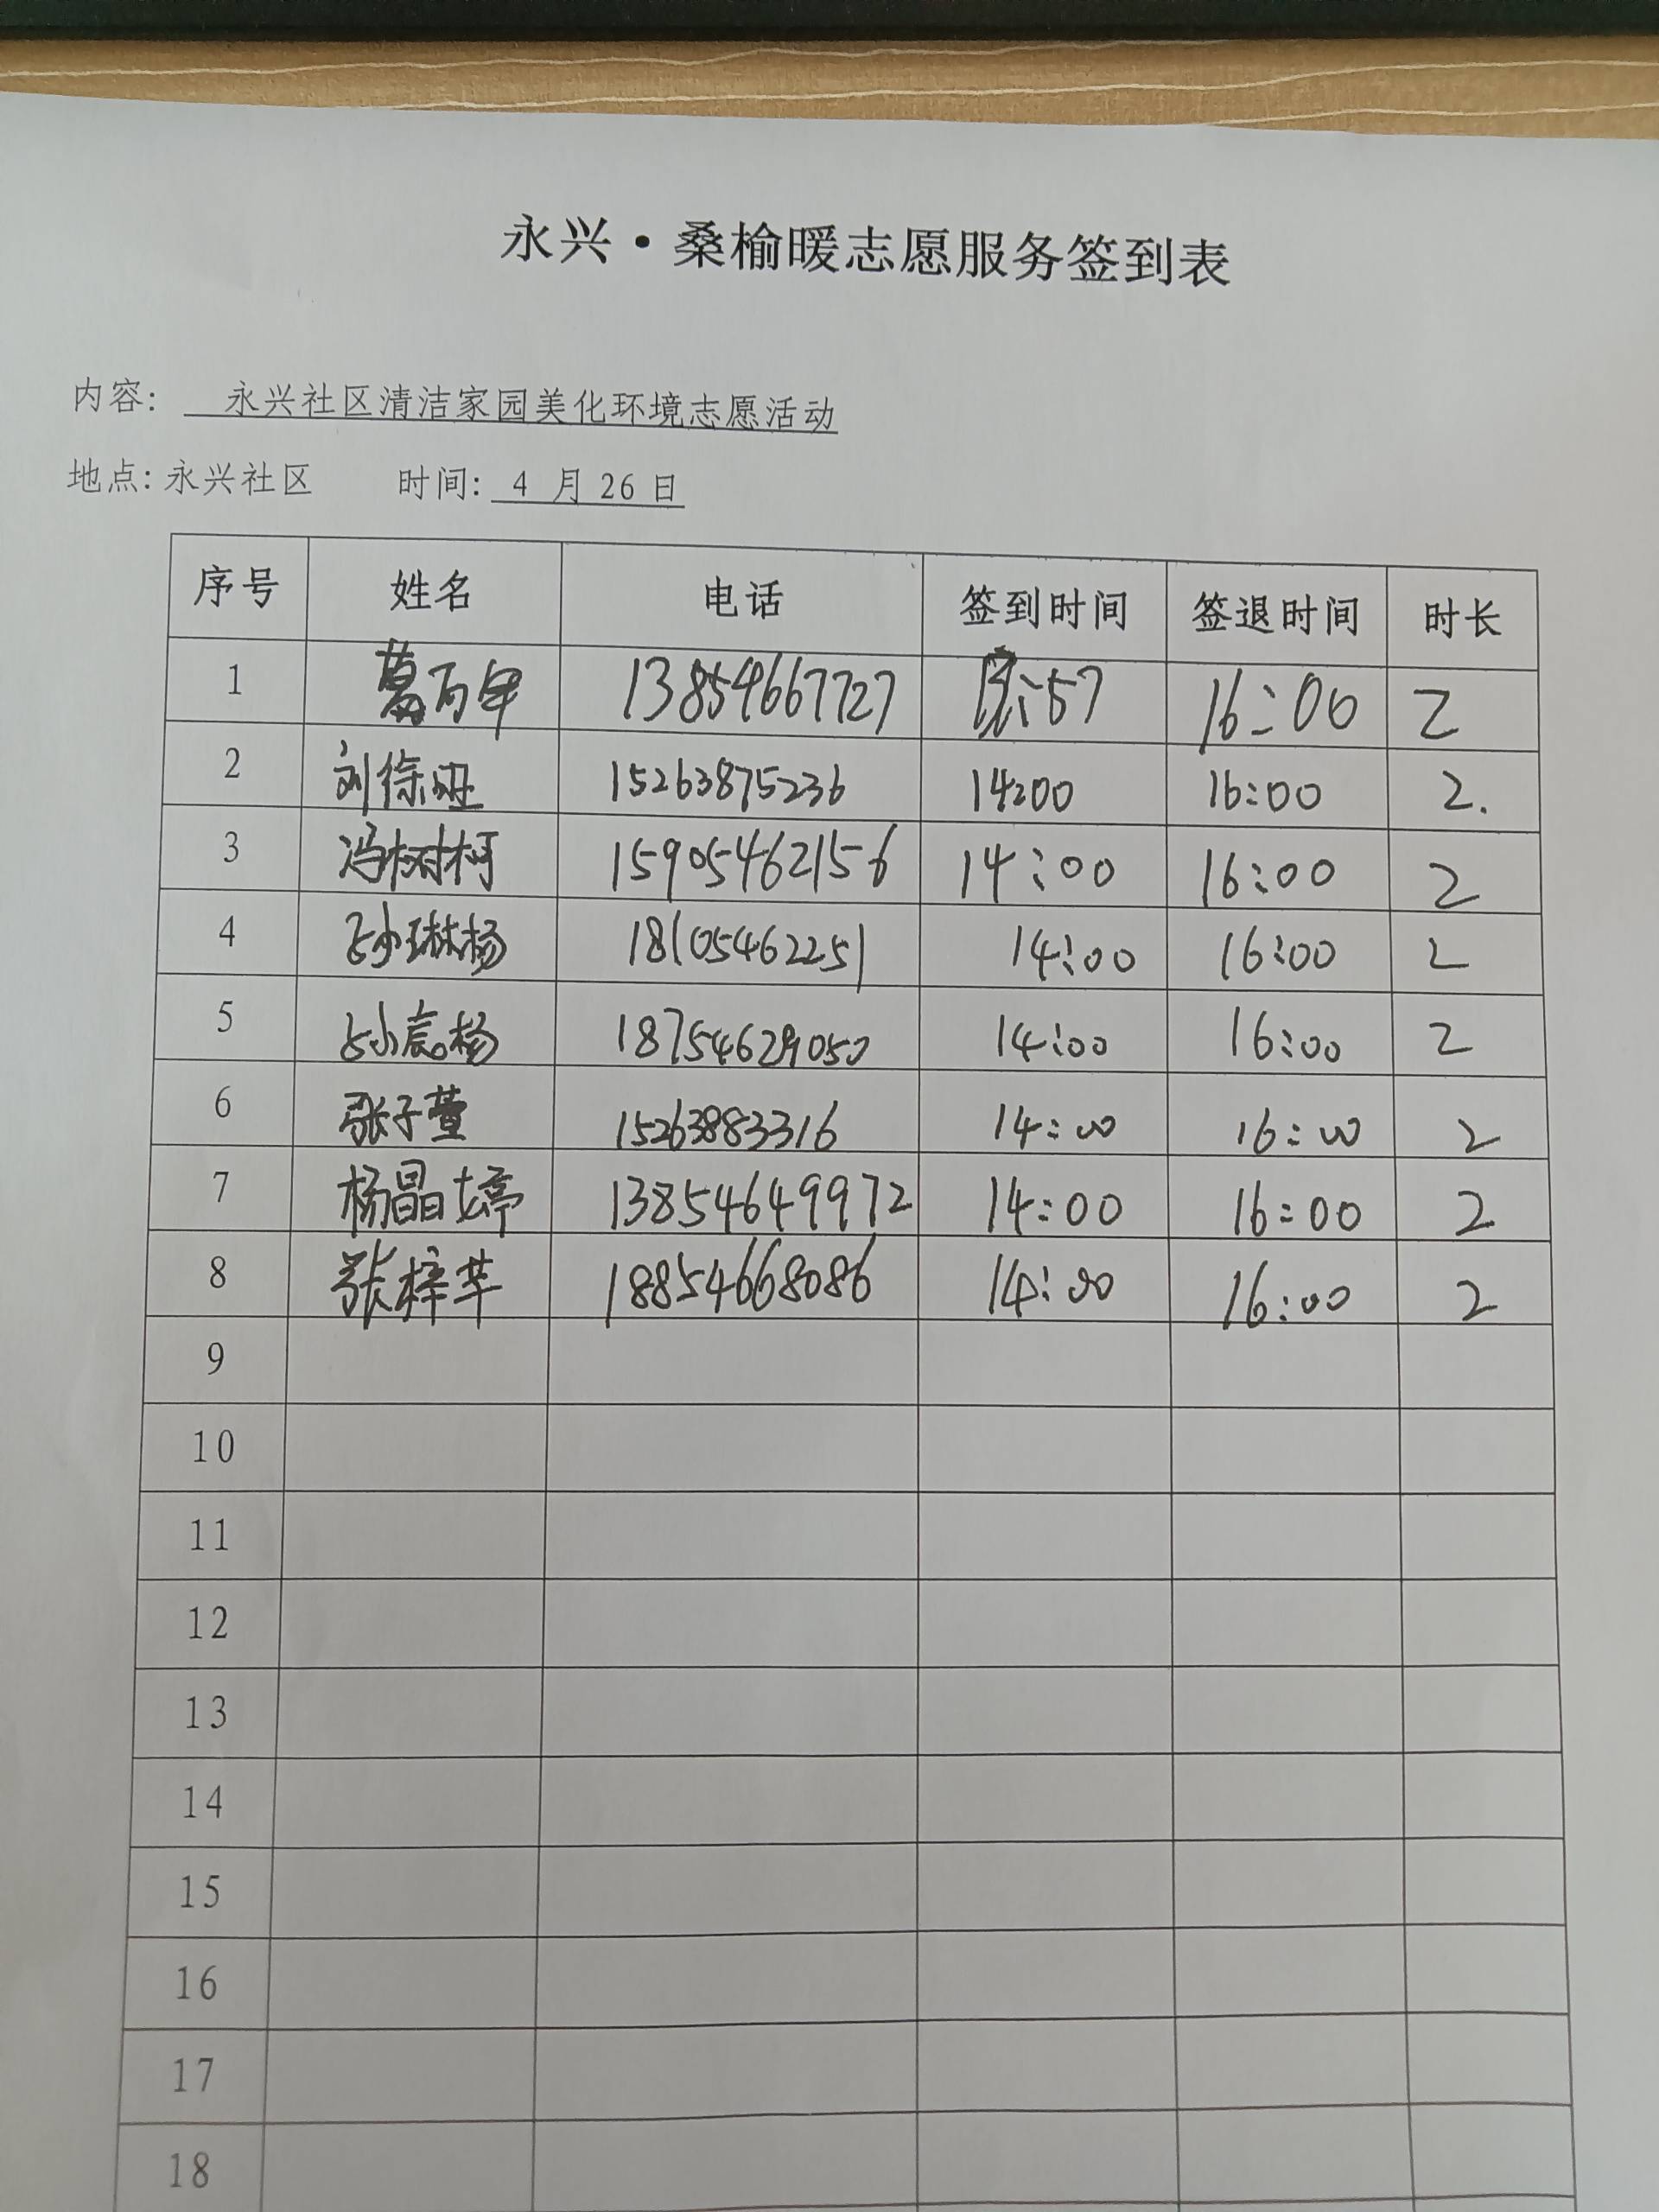 永兴·桑榆暖志愿服务签到表
内容: 永兴社区清洁家园美化环境志愿活动
地点: 永兴社区 时间: 4 月 26 日
序号 姓名 电话 签到时间 签退时间 时长
1 葛百年 13854667727 :57 16:00 2
2 刘 15263875236 14:00 16:00 2.
3 冯树柯 15905462156 14:00 16:00 2
4 孙琳杨 18105462251 14:00 16:00 2
5 18754629050 14:00 16:00 2
6 张子萱 15263883316 14:00 16:00 2
7 杨晶婷 13854649972 14:00 16:00 2
8 张梓芊 18854668086 14:00 16:00 2
9
10
11
12
13
14
15
16
17
18